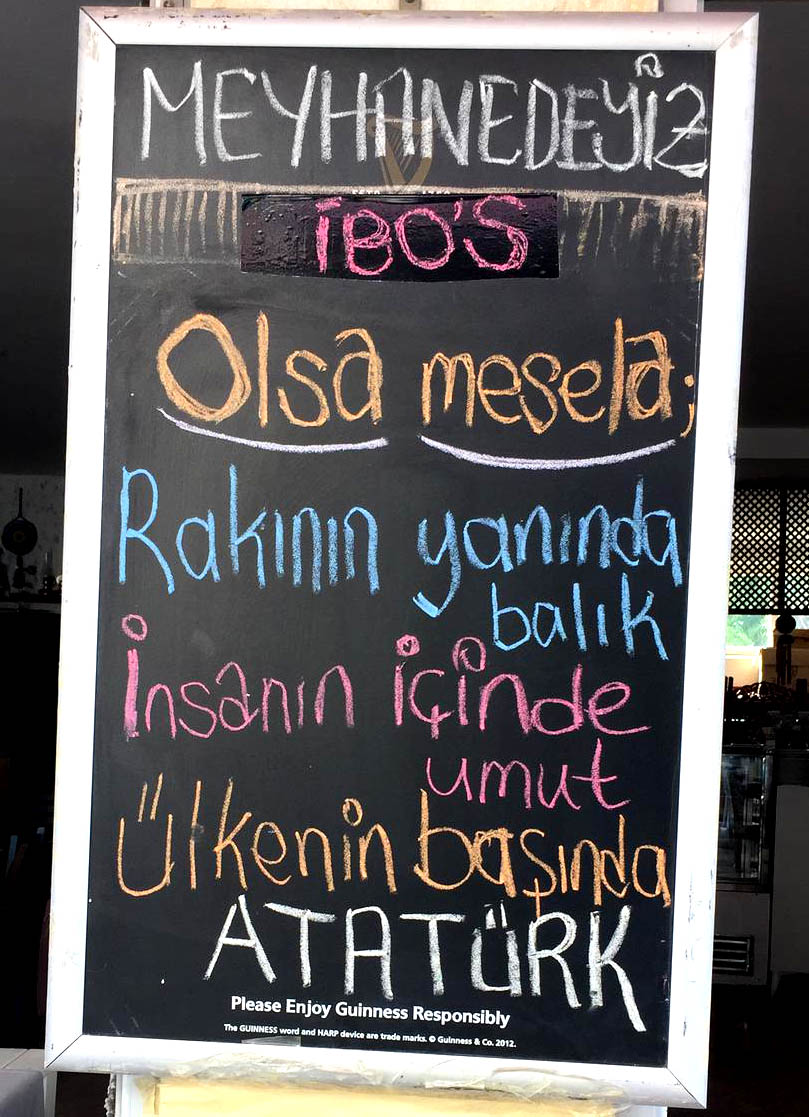 MEYHANEDEYİZ
İBO'S
Olsa mesela;
Rakının yanında
balık
İnsanın içinde
umut
Ülkenin başında
ATATÜRK
Please Enjoy Guinness Responsibly
The GUINNESS word and HARP device are trade marks. © Guinness & Co. 2012.